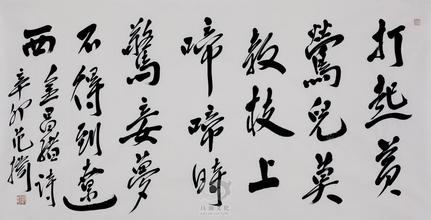 打起黃
鶯兒莫
教枝上
啼啼時
驚妾夢
不得到遼
西
金昌緒詩
辛卯范